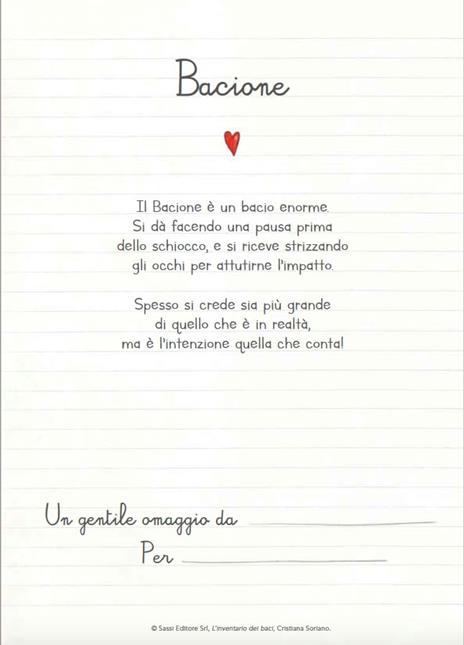 Bacione
Il Bacione è un bacio enorme.
Si dà facendo una pausa prima
dello schiocco, e si riceve strizzando
gli occhi per attutirne l'impatto.
Spesso si crede sia più grande
di quello che è in realtà,
ma è l'intenzione quella che conta!
Un gentile omaggio da
Per
© Sassi Editore Srl, L'inventario dei baci, Cristiana Soriano.